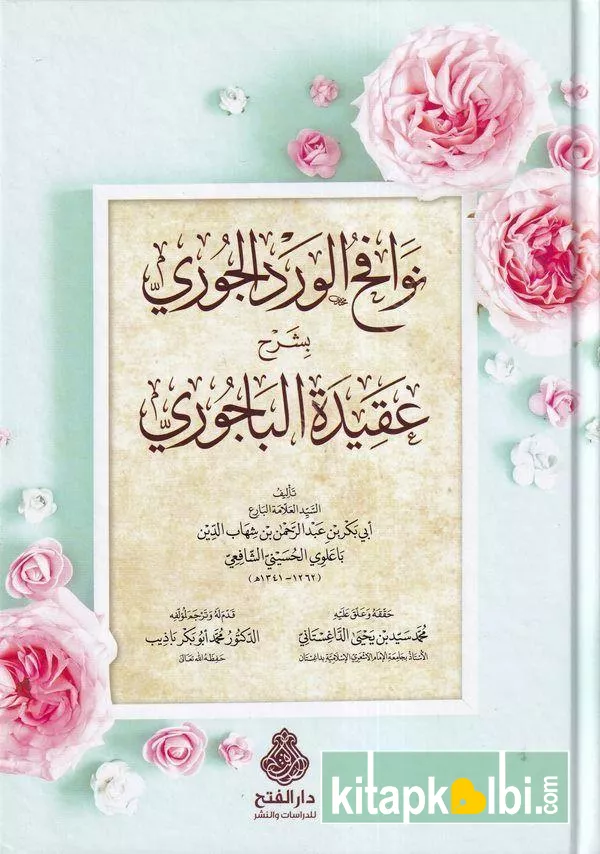 نوافح الورد الجوري
بشرح
عقيدة الباجوري
تأليف
السيد العلامة البارع
أبي بكر بن عبد الرحمن بن شهاب الدين
باعلوي الحسيني الشافعي
(١٢٦٢-١٣٤١هـ)
حققه وعلق عليه
محمد سيد بن يحيى الداغستاني
الأستاذ بجامعة الإمام الأشعري الإسلامية بداغستان
قدم له وترجم لمؤلفه
الدكتور محمد أبو بكر باذيب
حفظه الله تعالى
دار الفتح
للدراسات والنشر
kitapkalbi.com